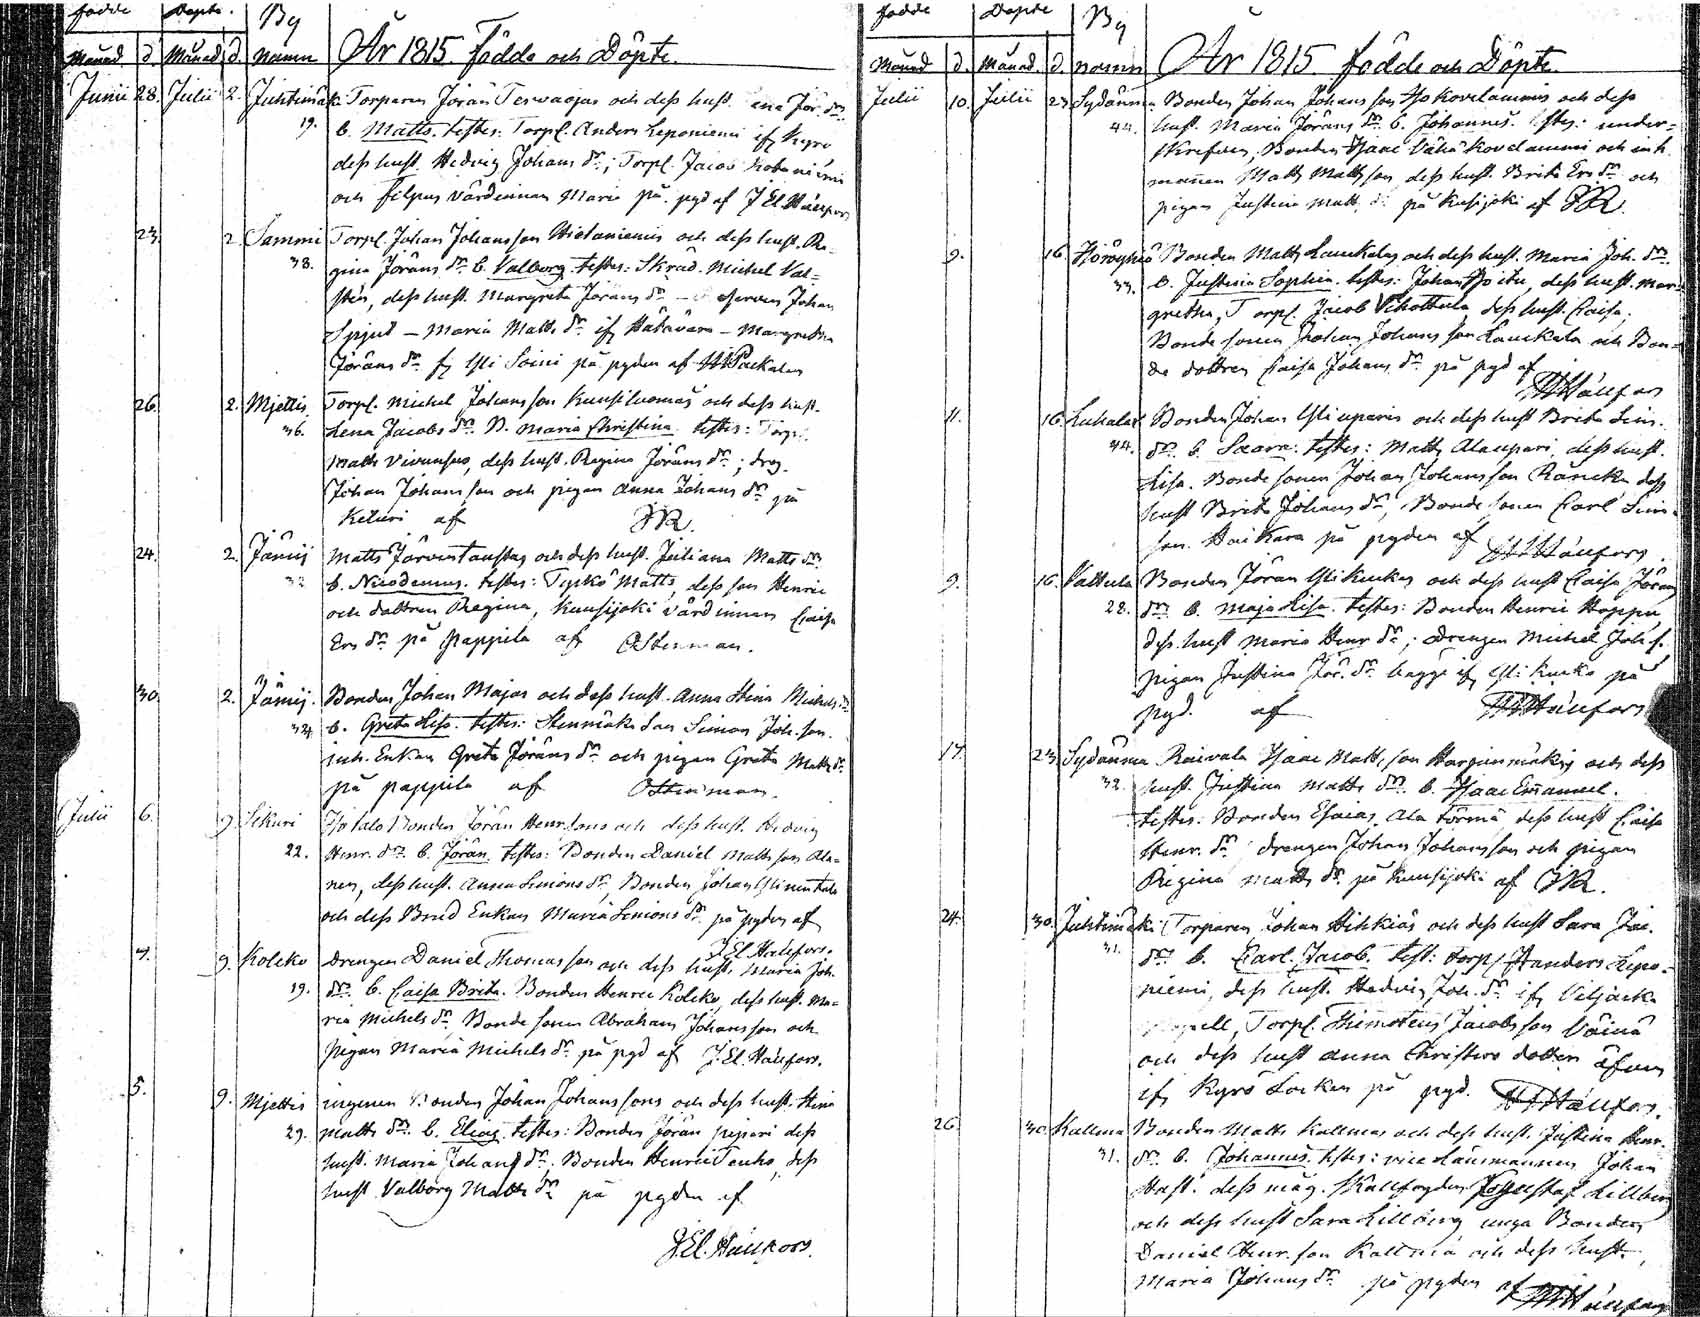 födde Döpte. By
Månad d. Månad d. namn År 1815. Födde och Döpte.
Junii 28. Julii 2. Juhtimäki Torparen Jöran Terwaojas och dess hust. Jör. dr
19. b. Matts. testes: Torpl. Anders Leponiemi if Kyro
dess hust. Hedvig Johans dr; Torpl. Jacob
och Filpus värdinnan Maria på pgd af J El Hällfors
23. 2. Sammi Torpl. Johan Johansson Hietaniemis och dess hust. Re-
38. gina Jörans dr. b. Valborg. testes: Skräd. Michel Val-
stén, dess hust. Margreta Jörans dr - Johan
Spjut - Maria Matts dr if Hätävara - Margretha
Jörans dr if Yli Soini på pgden af
26. 2. Mjettis Torpl. Michel Johansson Kuusiluomas och dess hust.
36. Lena Jacobs dr. D. Maria Christina. testes: Torpl.
Matts dess hust. Regina Jörans dr; dreg.
Johan Johansson och pigan Anna Johans dr på
Keturi af JR.
24. 2. Jämij Matts Järventaustas och dess hust. Juliana Matts dr.
32 b. Nicodemus. testes: Tyrkö Matts, dess son Henric
och dottren Regina, Kuusijoki värdinnan Caisa
Ers dr på Pappila af Österman.
30. 2. Jämij. Bonden Johan Majas och dess hust. Anna Stina Michels dr
34 b. Greta Lisa. testes: Stenmäki Son Simon Joh. son.
inh. Enkan Greta Jörans dr och pigan Greta Matts dr
på pappila af Österman.
Julii 6. 9. Sikuri Iso talo Bonden Jöran Henr.sons och dess hust. Hedvig
22. Henr. dr. b. Jöran. testes: Bonden Daniel Mattsson Ala-
nen, dess hust. Anna Simons dr, Bonden Johan
och dess Enkan Maria Simons dr. på pgden af
J El Hällfors.
7. 9. Kolcko Drengen Daniel Thomasson och dess hust. Maria Joh.
19. dr. b. Caisa Brita. Bonden Henric Kolcko, dess hust. Ma-
ria Michels dr, Bonde sonen Abraham Johansson och
pigan Maria Michels dr på pgd af J. El. Hällfors.
5. 9. Mjettis Bonden Johan Johanssons och dess hust. Stina
29. Matts dr. b. Elias. testes: Bonden Jöran pipari dess
hust. Maria Johans dr. Bonden Henric dess
hust. Valborg Matts dr på pgden af
J. El. Hällfors.
födde Döpte By
Månad d. Månad. d. namn År 1815. födde och Döpte.
Julii 10. Julii 23. Sydänma Bonden Johan Johansson Iso Kovelammis och dess
44. hust. Maria Jörans dr b. Johannes. testes: under-
skrefven, Bonden Isaac Vähä Kovelammi och inh.
mannen Matts Mattsson dess hust. Brita Ers dr och
pigan Justina Matts dr på Kusijoki af JR.
9. 16. Bonden Matts Lauckalas och dess hust. Maria Joh. dr
33. b. Justina Sophia. testes: Johan dess hust. Mar-
gretha, Torpl. Jacob dess hust. Caisa.
Bonde sonen Johan Johansson Lauckala och Bon-
de dottren Caisa Johans dr på pgd af
Hällfors
11. 16. Bonden Johan Yliuparis och dess hust Brita Sim.
44. dr b. Saara. testes: Matts Alaupari, dess hust.
Lisa. Bonde sonen Johan Johansson Räncku dess
hust Brita Johans dr, Bonde sonen Carl Sim-
son. Haikara på pgden af Hällfors.
9. 16. Vattula Bonden Jöran och dess hust Caisa Jöran
28. dr b. Maja Lisa. testes: Bonden Henric Hoppu,
dess hust Maria Henr dr; drengen Michel Joh. s.
pigan Justina Jör. dr bägge if på
pgd. af Hällfors
17. 23. Sydänma Raivala Isaac Mattsson Harjunmäkis och dess
32. hust. Justina Matts dr. b. Isaac Emanuel.
testes: Bonden Esaias Ala törmä dess hust Caisa
Henr. dr drengen Johan Johansson och pigan
Regina Matts dr. på Kuusijoki af JR.
24. 30. Juhtimäki Torparen Johan Hihkiäs och dess hust Sara Jac.
31. dr. b. Carl Jacob. test: torpl. Anders Lepo-
niemi, dess hust. Hedvig Joh. dr if
Torpl. Thimoteus Jacobsson Väinä
och dess hust Anna Christers dotter äfven
if Kyro Socken på pgd. Hällfors.
26. 30. Kallma Bonden Matts Kallmas och dess hust. Justina Henr.
31. dr. b. Johannes. testes: vice Länsmannen Johan
Hast. dess måg. Skallfogden Gustaf Lillberg
och dess hust Sara Lillberg unga Bonden
Daniel Henr.son Kallma och dess hust.
Maria Johans dr på pgden af Hällfors